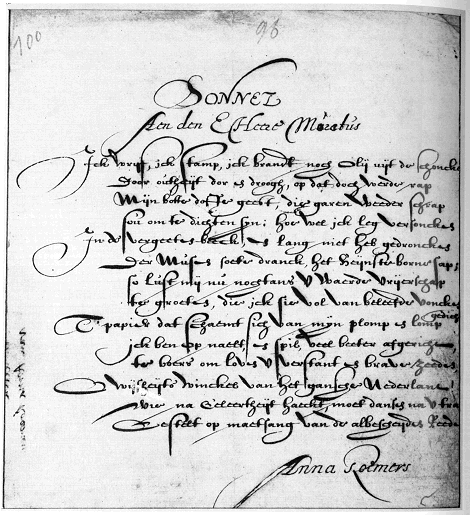 100 96
SONNET
Aen den E Heere
Ick wrijf, ick stamp, ick brandt noch Olij uijt de schoncke
Door outheijt dor es droogh, op dat doch werde rap
Mijn botte doffe geest, die garen weeder schrap
sou om te dichten sijn: hoe wel ick leg versoncken
In de vergeetel beeck, es lang niet heb gedroncken
Der Muses soete dranck, het borne sap:
so lust mij nu nogtans U waerde vrijerschap
te groeten, die ick sie vol van beleefde voncke
gedich
T' papier dat schaemt sich van mijn plomp es lomp
ick ben op naelt, es spil, veel beeter afgericht,
te boers om loven U verstant es brave zeeden
O wijsheijts winckel van het gansche Nederlant
Wie na Geleertheijt haeckt, moet danssen na U tra
Gestelt op maetsang van de Reede
Anna Roemers